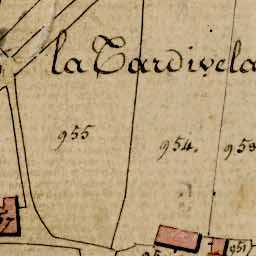 la Tardivela
955 954. 953
951